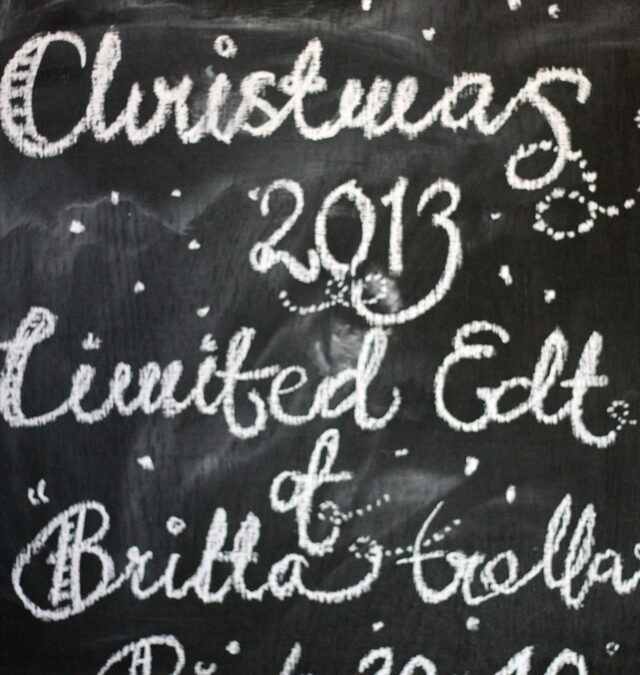 Christmas
2013
Limited Edt.
of
"Britta trolla